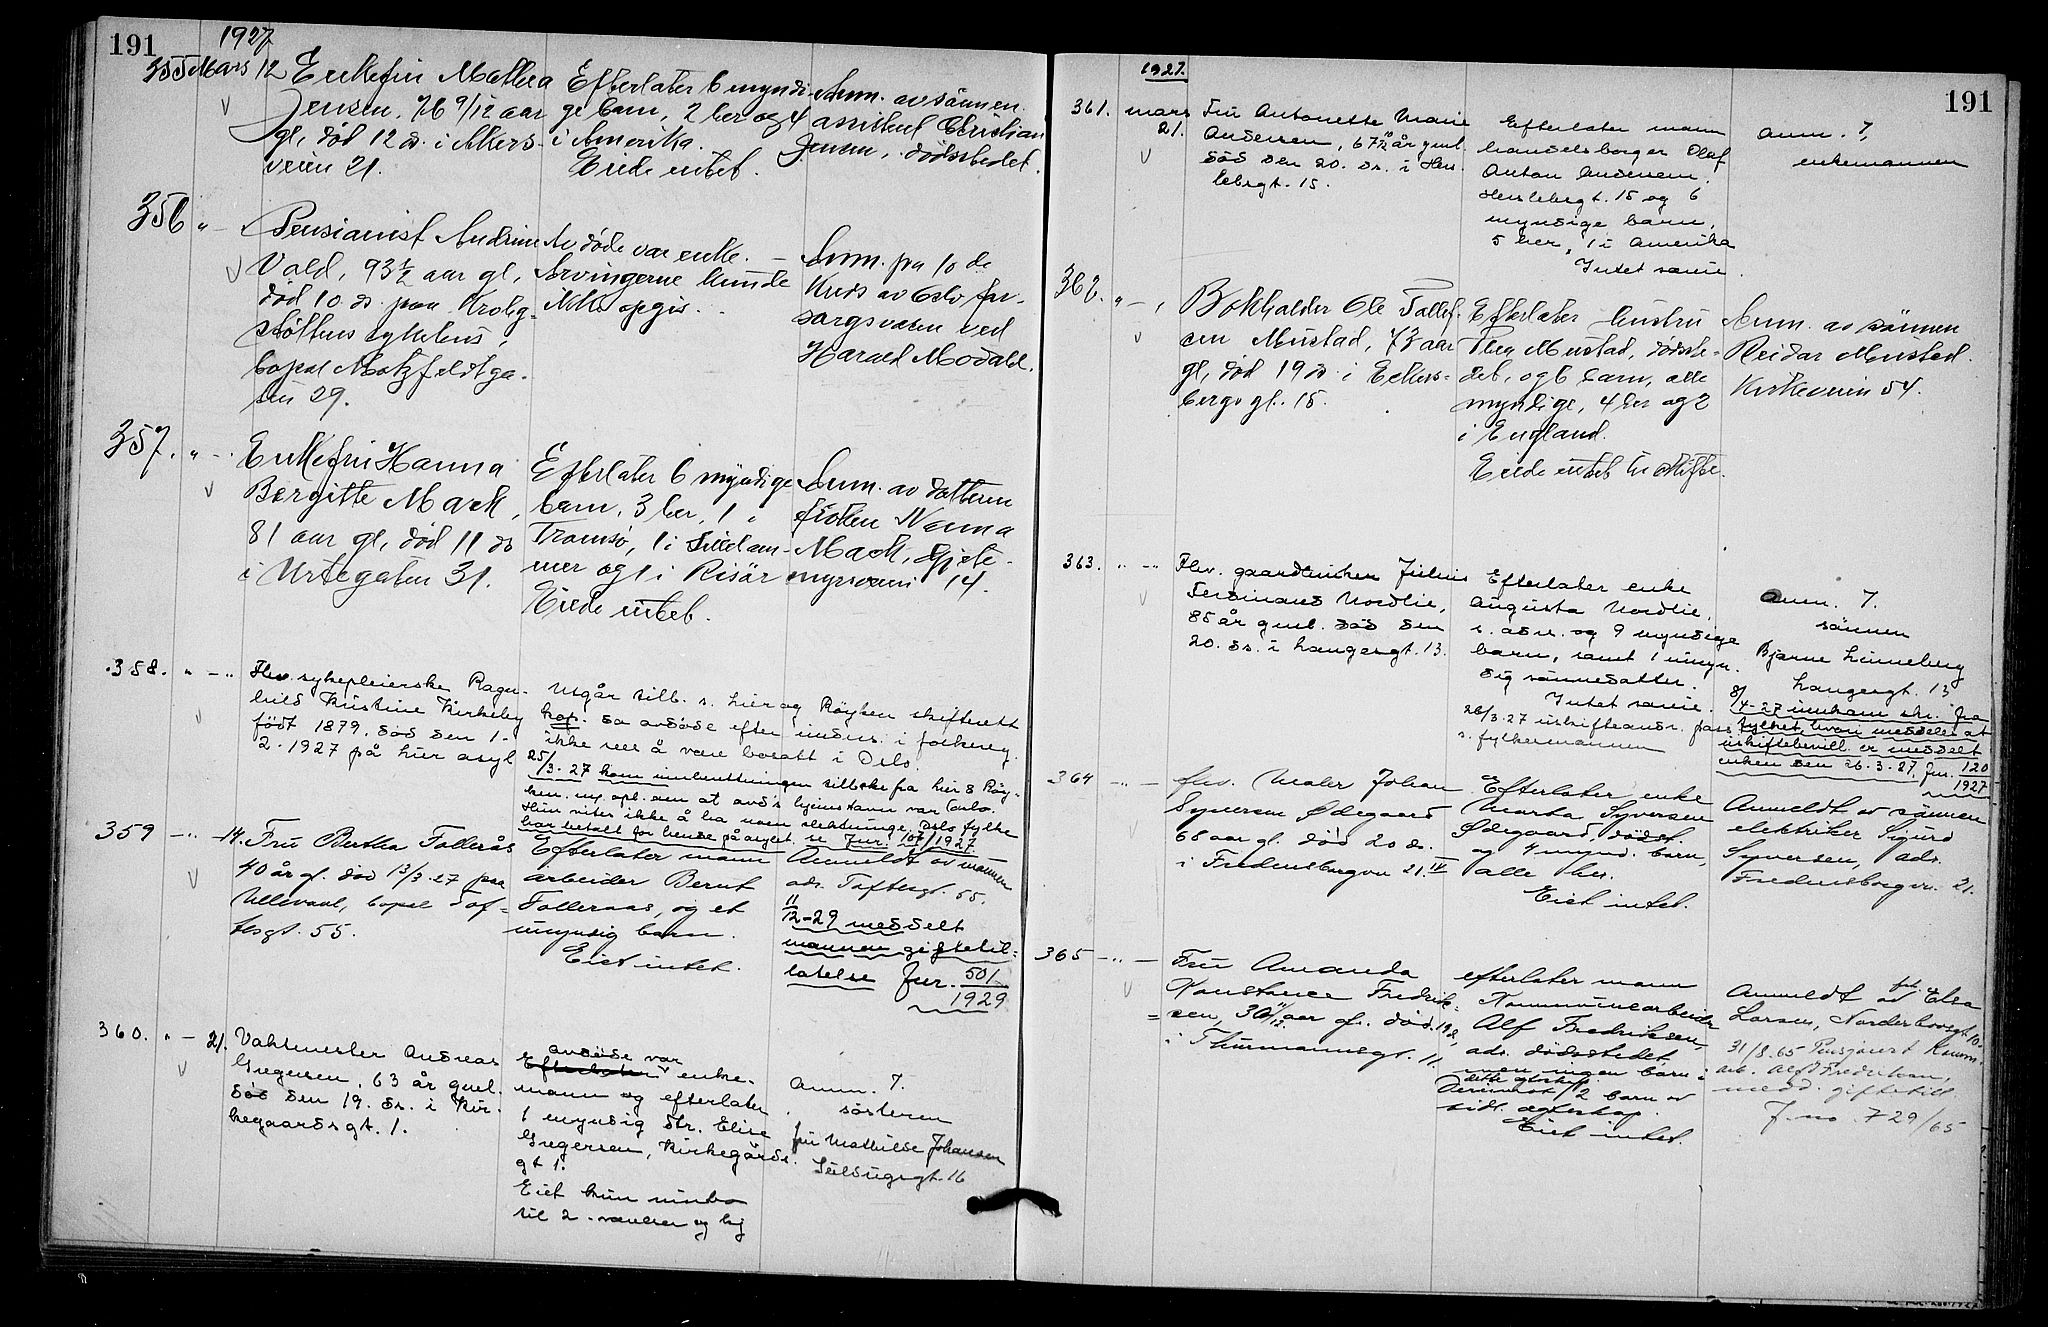 191
1927
355 Mars 12 Enkefru Mathea
Jensen, 76 9/12 aar
gl, død 12 ds. i Akers-
veien 21.
Efterlater 6 myndi-
ge barn, 2 her og 4
i Amerika.
Eiede intet.
Anm. av sønnen
assistent Christian
Jensen, dødsstedet.
356 " — Pensionist Andrine
Vold, 93 1/2 aar gl,
død 10 ds. paa Krohg-
støttens sykehus,
bopæl Motzfeldtga-
ten 29.
Av døde var enke. —
Arvingerne kunde
ikke opgis.
Anm. fra 10 de
Kreds av Oslo for-
sorgsvæsen ved
Harald Modahl.
357. " — Enkefru Hanna
Bergitte Mack,
81 aar gl, død 11 ds
i Urtegaten 31.
Efterlater 6 myndige
barn, 3 her, 1 i
Tromsø, 1 i Lilleham-
mer og 1 i Risør
Eiede intet.
Anm. av datteren
frøken Nanna
Mack, Gjete-
myrsveien 14.
358. " — " Flev. sykepleierske Ragn-
hild Kristine Kirkeby
født 1879, død den 1.
2. 1927 på hier asyl
Utgår till. s. Lier og Røyken skifterett
hop. da avdøde efter unders. i folkereg.
ikke sees å være bosatt i Oslo.
25/3. 27 kom innberetningen tilbake fra Lier & Røy-
ken m. opl. om at avd's hjemstavn var Oslo.
Hun vites ikke å ha noen slektninge. Oslo fylke
har betalt for hende på asylet. se Jur. 107/1927.
359 — " — 14. Fru Bertha Tollerås
40 år gl. død 13/3. 27 paa
Ullevaal, bopæl Tof-
tesgt. 55.
Efterlater mann
arbeider Bernt
Tolleraas, og et
umyndig barn.
Eiet intet.
Anmeldt av mannen
adr. Toftesgt. 55.
11/12-29 meddelt
mannen giftetil-
latelse Jur. 501/1929
360. " — 21. Vaktmester Andreas
Gregersen, 63 år gml.
død den 19. ds. i Kir-
kegaardsgt. 1.
avdøde var
Efterlater enke-
mann og efterlater
1 myndig dtr. Elise
Gregersen, Kirkegårds-
gt 1.
Eiet kun innbo
til 2 værelser og kj
Anm. 7.
søsteren
fru Mathilde Johansen
Seilduksgt. 16
191
1927.
361. mars 21. Fru Antonette Marie
Andersen, 67 10/12 år gml.
død den 20. ds. i Hers-
lebsgt. 15.
Efterlater mann
handelsborger Olaf
Anton Andersen,
Herslebsgt. 15 og 6
myndige barn,
5 her, 1 i Amerika
Intet samie.
Anm. 7,
enkemannen
362. " — , Bokholder Ole Tollef-
sen Mustad, 73 aar
gl, død 19 ds. i Eckers-
bergs gt. 15.
Efterlater hustru
Thea Mustad, dødsste-
det, og 6 barn, alle
myndige, 4 her og 2
i England.
Eiede intet til skifte.
Anm. av sønnen
Reidar Mustad
Kirkeveien 54.
363. " — " Flev. gaardbruker Julius
Ferdinand Nordlie,
85 år gml. død den
20. ds. i Langesgt. 13.
Efterlater enke
Augusta Nordlie,
s. adr. og 9 myndige
barn, samt 1 umyn-
dig sønnedatter.
Intet samie.
26/3. 27 uskifteandr. pass.
s. fylkesmannen
Anm. 7.
sønnen
Bjarne Linneberg
Langesgt. 13
8/4-27 innkom skr. fra
fylket hvori meddeles at
uskiftebevill. er meddelt
enken den 26. 3. 27. Jur. 120/1927
364 — " — flev. Maler Johan
Syversen Ødegaard
68 aar gl. død 20 ds.
i Fredensborgvn 21. IV
Efterlater enke
Marta Syversen
Ødegaard, dødst.
og 4 mynd. barn,
alle her.
Eiet intet.
Anmeldt av sønnen
elektriker Sigurd
Syversen, adr.
Fredensborgvn. 21.
365 — " — Fru Amanda
Konstance Fredrik-
sen, 30 11/12 aar gl. død 19 ds,
i Thurmannsgt. 11.
efterlater mann
Kommunearbeider
Alf Fredriksen,
adr. dødsstedet,
men ingen barn i
dette ægteskap.
Derimot 2 barn av
tidl. ægteskap.
Eiet intet.
Anmeldt av frk. Elsa
Larsen, Nordenhovsgt. 10.
31/8.65 Pensjonert Komm.
arb. Alf Fredriksen,
medd. giftetill.
J. no. 729/65